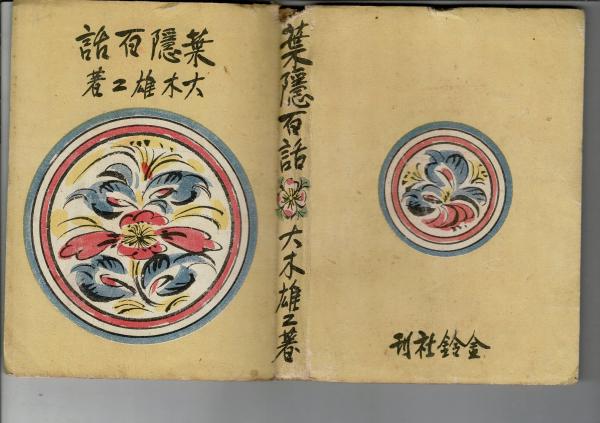 葉隱百話
大木雄二著
葉隱百話
大木雄二著
金鈴社刊